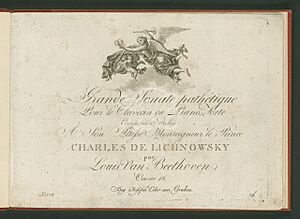 Grande Sonate pathétique
Pour le Clavecin ou Piano-Forte
Composée et Dediée
A Son Altesse Monseigneur le Prince
CHARLES DE LICHNOWSKY
par
Louis van Beethoven
Œuvre 13.